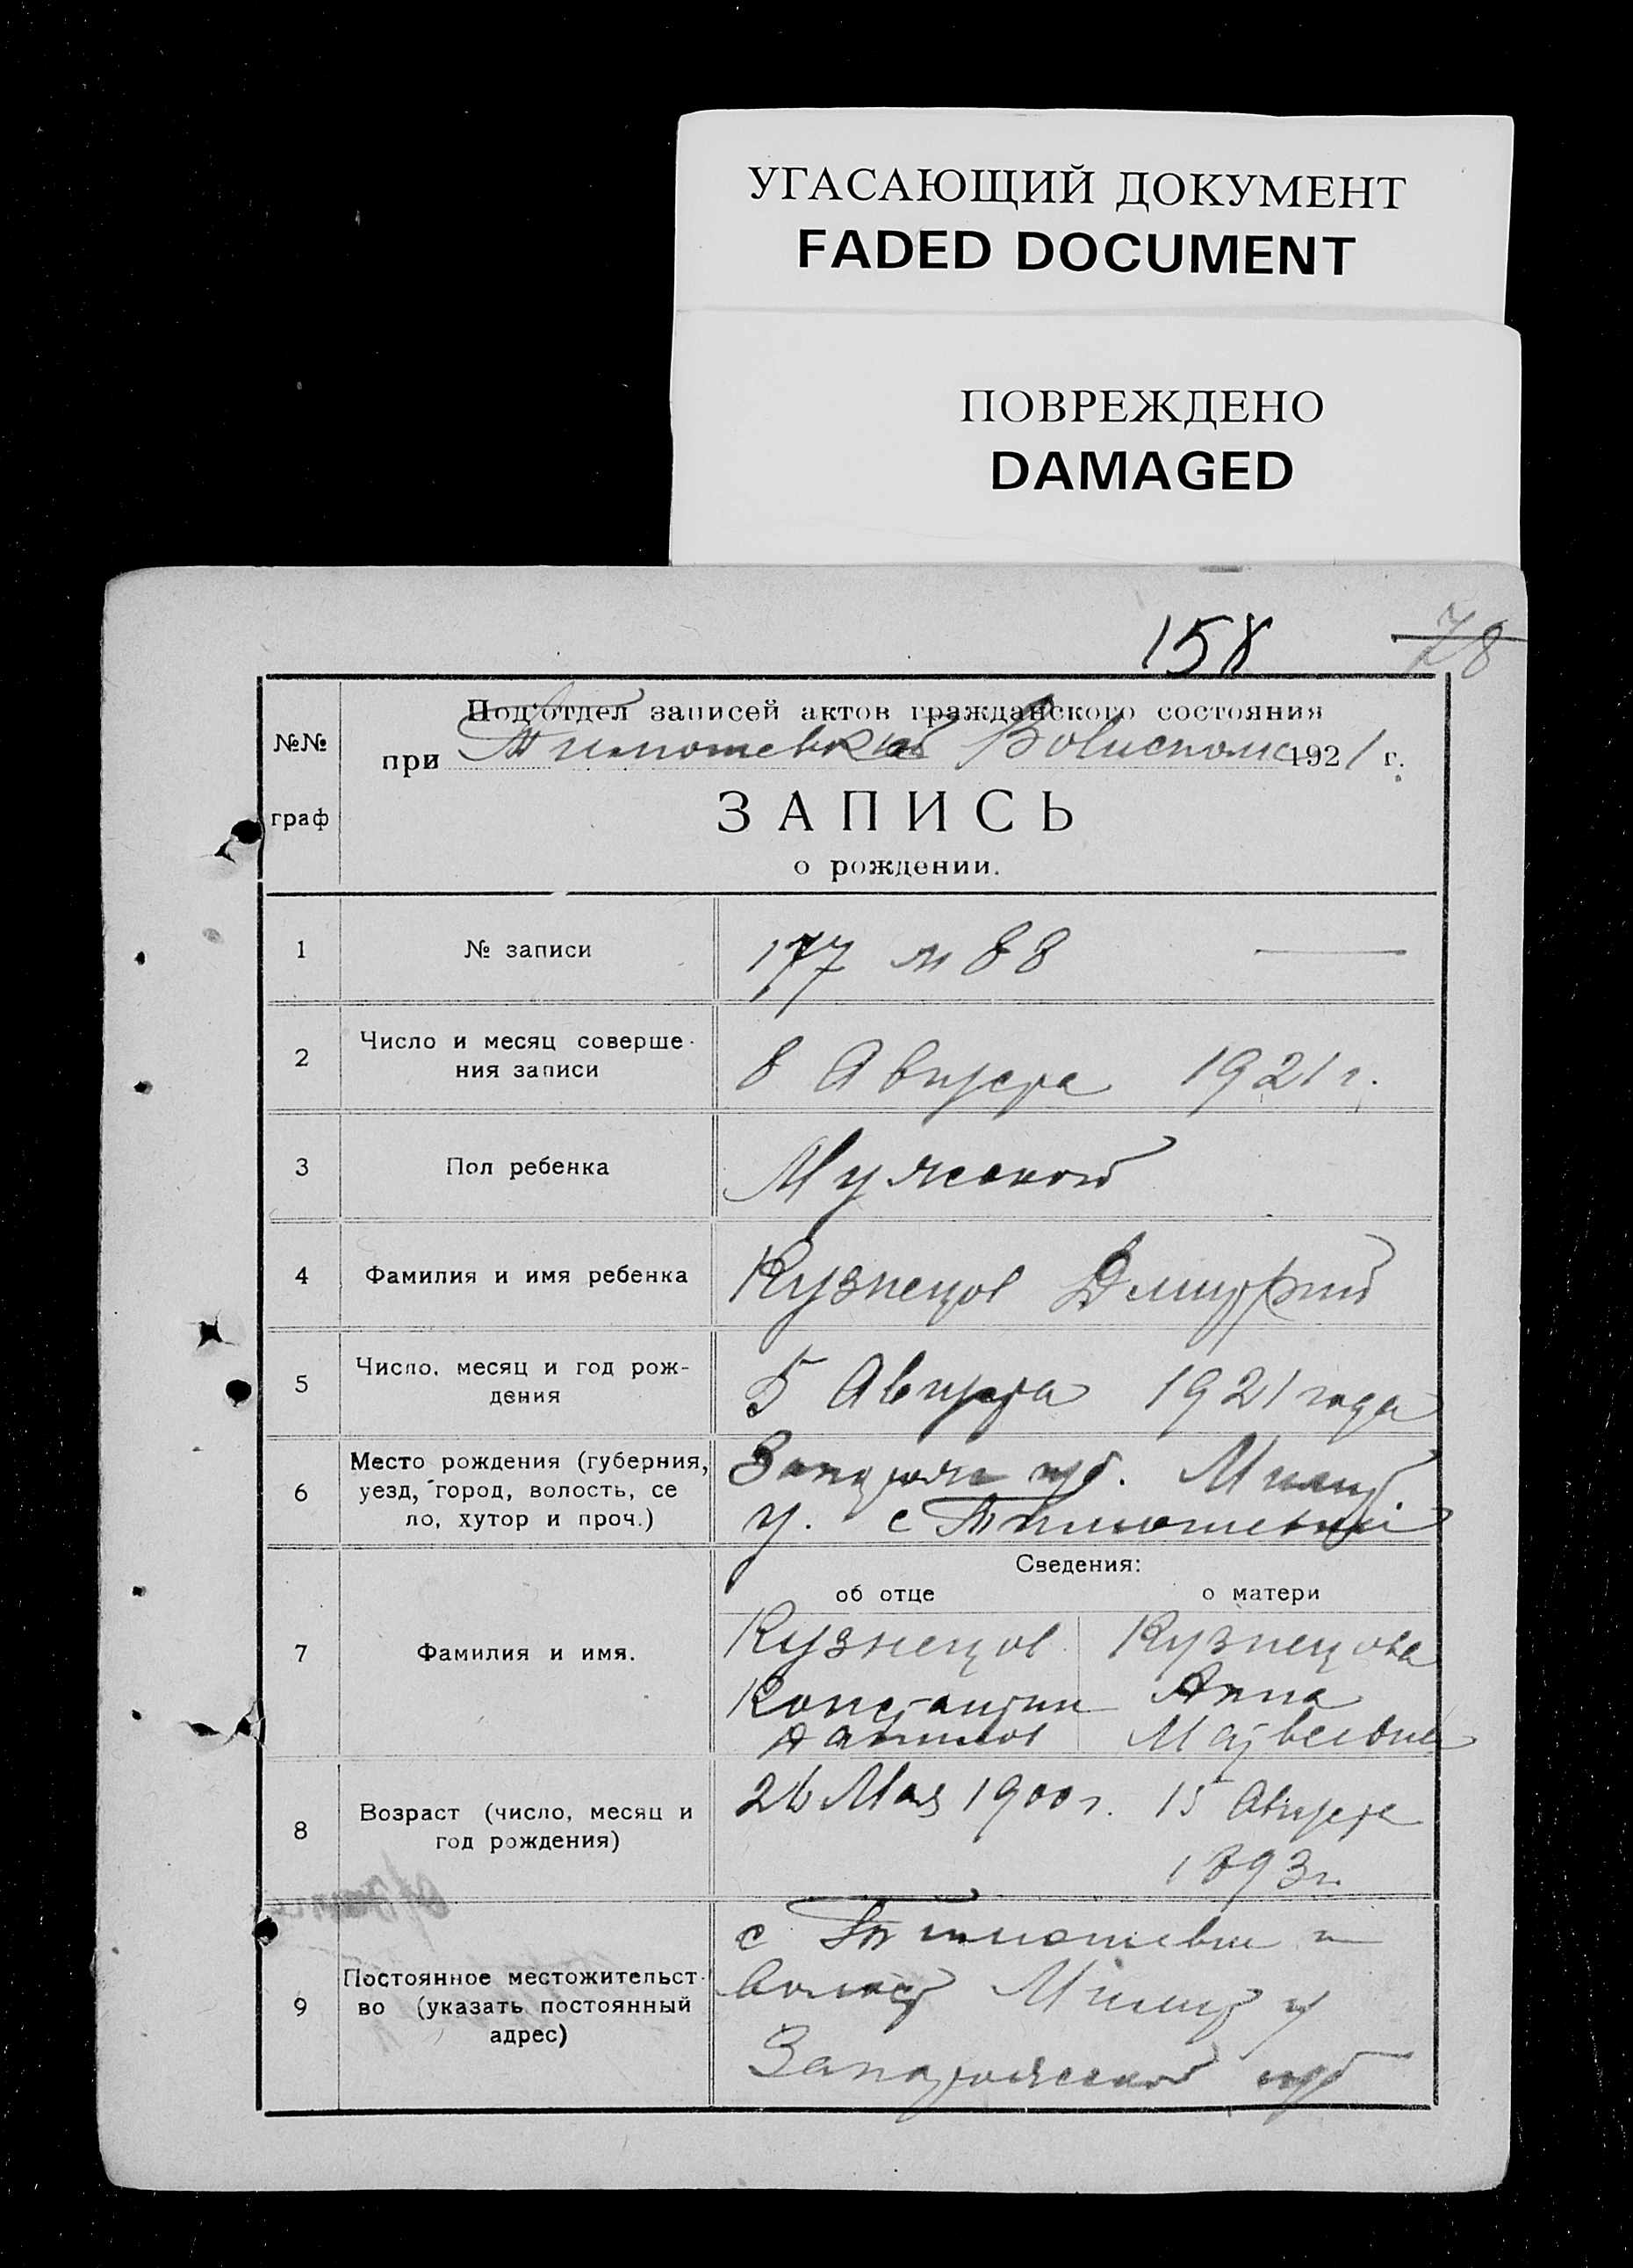 УГАСАЮЩИЙ ДОКУМЕНТ
FADED DOCUMENT
ПОВРЕЖДЕНО
DAMAGED
158 78
№№
граф
Под'отдел записей актов гражданского состояния
при Тимошевской Волисполк 1921 г.
ЗАПИСЬ
о рождении.
1 № записи 177 м 88
2 Число и месяц соверше-
ния записи
8 Августа 1921 г.
3 Пол ребенка Мужской
4 Фамилия и имя ребенка Кузнецов Дмитрий
5 Число, месяц и год рож-
дения
5 Августа 1921 года
6 Место рождения (губерния,
уезд, город, волость, се
ло, хутор и проч.)
губ. Мелит.
у. с Тимошевки
Сведения:
об отце о матери
7 Фамилия и имя.
Кузнецов Кузнецова
Константин Анна
Матвеевна
8 Возраст (число, месяц и
год рождения)
26 Мая 1900 г. 15 Августа
1893 г.
9 Постоянное местожительст-
во (указать постоянный
адрес)
с Тимошевки
волост Мелит у
Запорожской губ